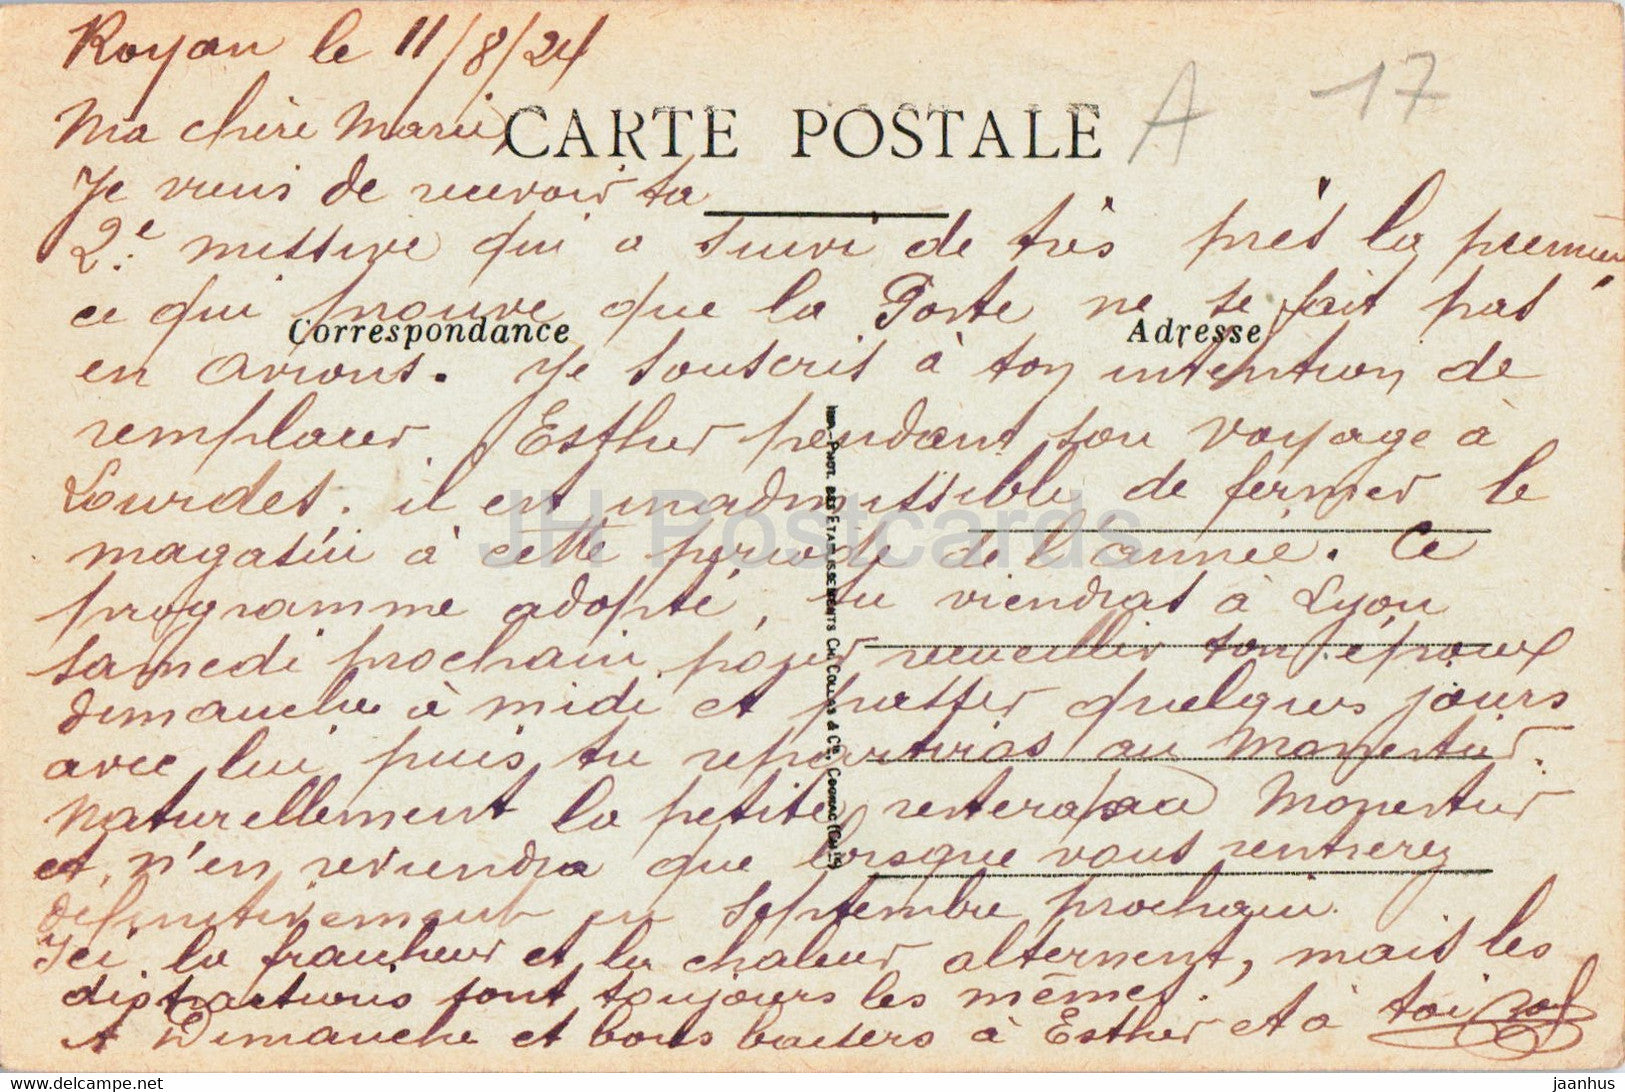 Royan le 11/8/24
A 17
Ma chère Marie
CARTE POSTALE
Je viens de recevoir ta
2e missive qui a suivi de très près la première
ce qui prouve que la Poste ne se fait pas
Correspondance
Adresse
en avions. Je souscris à ton intention de
remplacer Esther pendant son voyage à
Lourdes. il est inadmissible de fermer le
magasin à cette période de l'année. Ce
programme adopté, tu viendras à Lyon
samedi prochain pour recueillir ton époux
dimanche à midi et passer quelques jours
avec lui puis tu repartiras au Monestier.
Naturellement la petite restera au Monestier
et n'en reviendra que lorsque vous rentrerez
définitivement en septembre prochain.
Ici la fraicheur et la chaleur alternent, mais les
distractions sont toujours les mêmes.
A Dimanche et bons baisers à Esther et à toi
IMP. PHOT. DES ETABLISSEMENTS CH. COLLAS & CIE, COGNAC
JH Postcards
https://www.delcampe.net
jaanhus